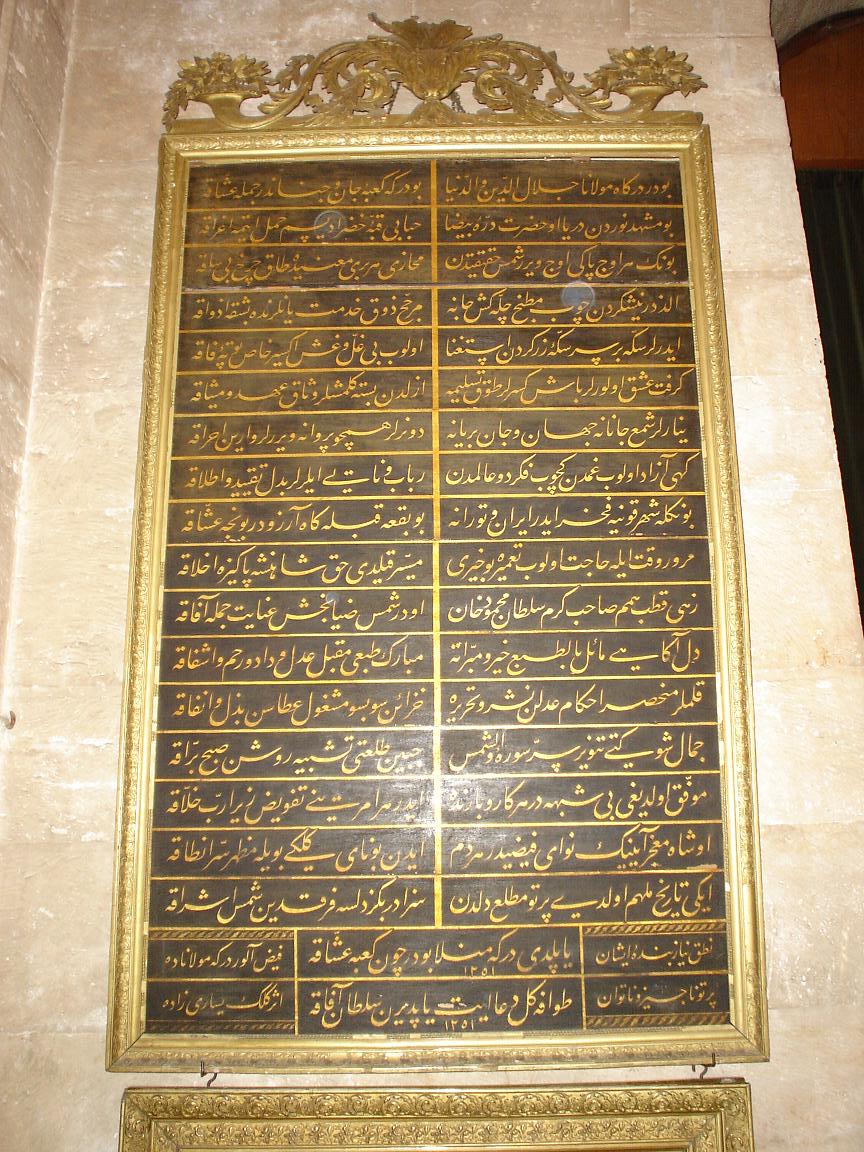 بودر درگاه مولانا جلال الدّین و الدّنیا
بودر که کعبهٔ جان و جهاندر جمله عشاقه
بومشهد نوردن دریا او حضرت درّهٔ بیضا
حبابی قبّهٔ خضرادیم حمل ایتمه اغراقه
بونک هر اوج پاکی اوج ویرر شمس حقیقتدن
مجازی سربری معتبده طاق چرخ بی باقه
الذدر نیشکردن چوب مطبخ چله کش جانه
مرجح ذوق خدمت یانلرنده بشقا ذواقه
ایدرلر سکّه بر سر سکّهٔ زرکردن استغنا
اولوب بی غلّ و غش اکسیر خاص
کرفت عشق اولورلر باش کسرلر طوق تسلیمه
ازلدن بسته کلمشلر وثاق عهد و میثاقه
ینارلر شمع جانانه جهان و جان بریانه
دونرلر همچو پروانه ویررلر وارین احراقه
کهی آزاد اولوب غمدن کچوب فکر دو عالمدن
رباب و نات بی ایلرلر بدل تقیید و اطلاقه
بونکله شهر قونیه فخر ایدر ایران و تورانه
بو بقعه قبله کاه آرزودر بونجه عشاقه
مرور وقت ایله حاجت اولوب تعمیره بو خیری
میسّر قلیدی حق شاهنشه پاکیزه اخلاقه
زهی قطب همم صاحب کرم سلطان محمود خان
اودر شمس ضیابخش عنایت جمله آفاقه
دل آکاهی مائل بالطبع خیر و مبرّاته
مبارک طبعی مقبل عدل و داد و رحم و اشفاقه
قلملر منحصر احکام عدلن نشر و تحریره
خزائن سوبسو مشغول عطاسن بذل و انفاقه
جمال شوکتی تنویر سرّ سورهٔ والشمس
جبین طلعتی تشبیه روشن صبح برّاقه
موفّق اولدیغی بی شبهه در هر کار و بارنده
ایدر هر امر تینی تفویض زیرا ربّ خلّاقه
او شاه معجز آیینک نوای فیضیدر هر دم
ایدن بو نای کلکی بویله مظهر سرّ انطاقه
ایکی تاریخ ملهم اولدی پرتو مطلع دلدن
سزادر بکزدلسه فرقدین شمس اشراقه
نطق نیاز بندهٔ ایشان
یاپلدی درکه منلا بودر چون کعبه عشاقه
١٢٥١
فیض آلور درکه مولاناده
پرتو ناچیز و ناتوان
طوافه کل دعا ایت یاپدیرن سلطان آفاقه
١٢٥١
اثر کلک یساری زاده